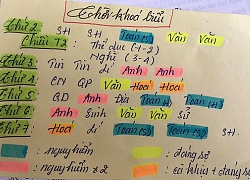 Thời khoá biểu
Thứ 2 SH SH Toán CS2 Văn Văn
Chiều T2 Thể dục (1-2)
Nghỉ (3-4)
Thứ 3 Tin Tin Lí Anh Anh
Thứ 4 CN QP Văn Hoá Hoá
Thứ 5 GD Anh Địa Toán
Thứ 6 Anh Sinh Văn Văn Sử
Thứ 7 Hoá Lí Toán Toán CS2 SH
: nguyhiểm : đáng sợ
: nguyhiểm x 2